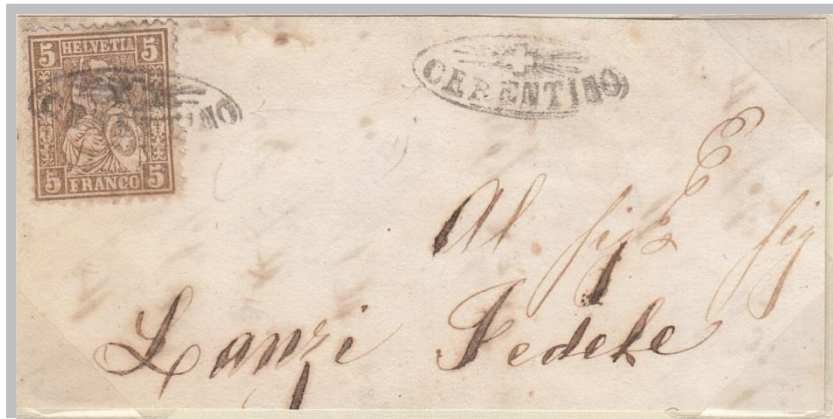 5 HELVETIA 5
5 FRANCO 5
CERENTINO
Al sig.
Lanzi Fedele